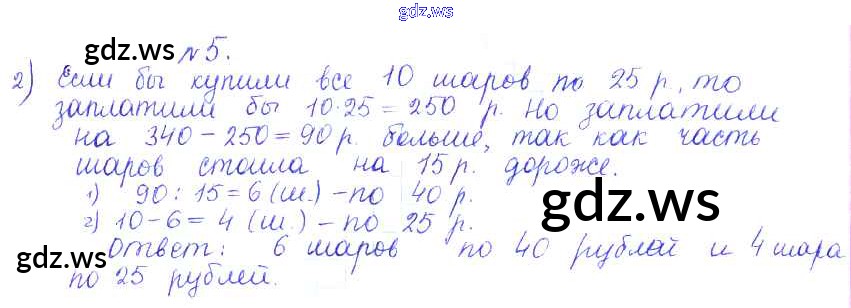 gdz.ws
gdz.ws №5.
2) Если бы купили все 10 шаров по 25 р, то
заплатили бы 10·25=250 р. Но заплатили
на 340-250=90р. больше, так как часть
шаров стоила на 15р. дороже.
1) 90:15=6(ш.)-по 40 р.
2) 10-6=4 (ш.)-по 25 р.
gdz.ws
Ответ: 6 шаров по 40 рублей и 4 шара
gdz.ws
по 25 рублей.